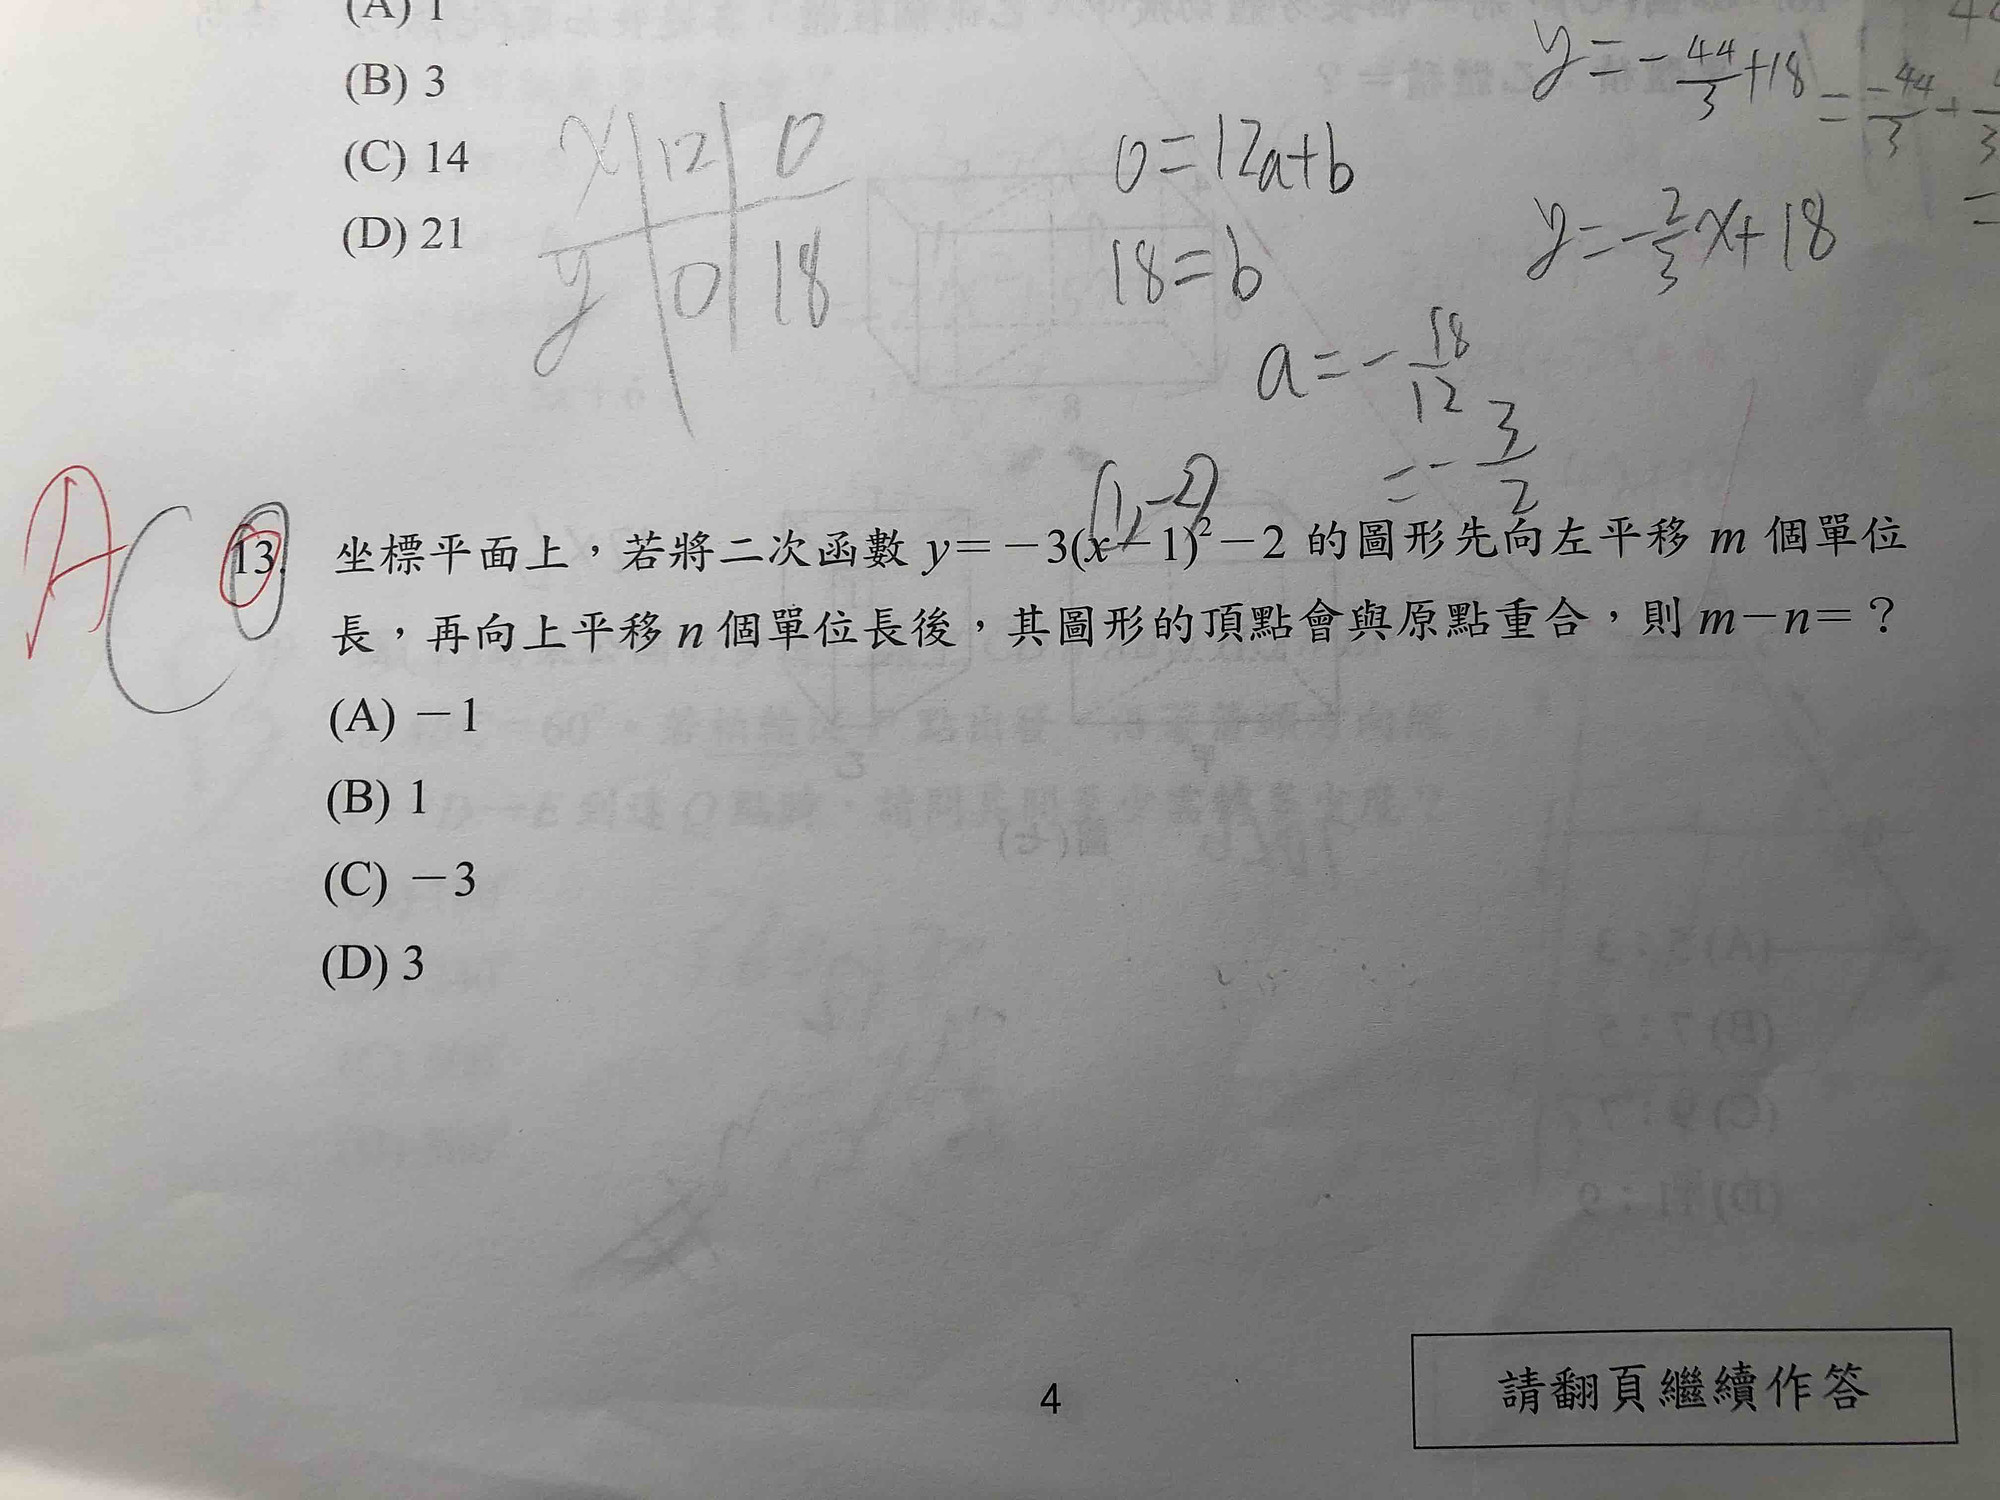 (A) 1
(B) 3
(C) 14
(D) 21
x 12 0
y 0 18
0=12a+b
18=b
a=-18/12
=-3/2
y=-44/3+18
y=-2/3x+18
(1,-2)
A C
13. 坐標平面上，若將二次函數 y=-3(x-1)²-2 的圖形先向左平移 m 個單位
長，再向上平移 n 個單位長後，其圖形的頂點會與原點重合，則 m-n=？
(A) -1
(B) 1
(C) -3
(D) 3
4
請翻頁繼續作答